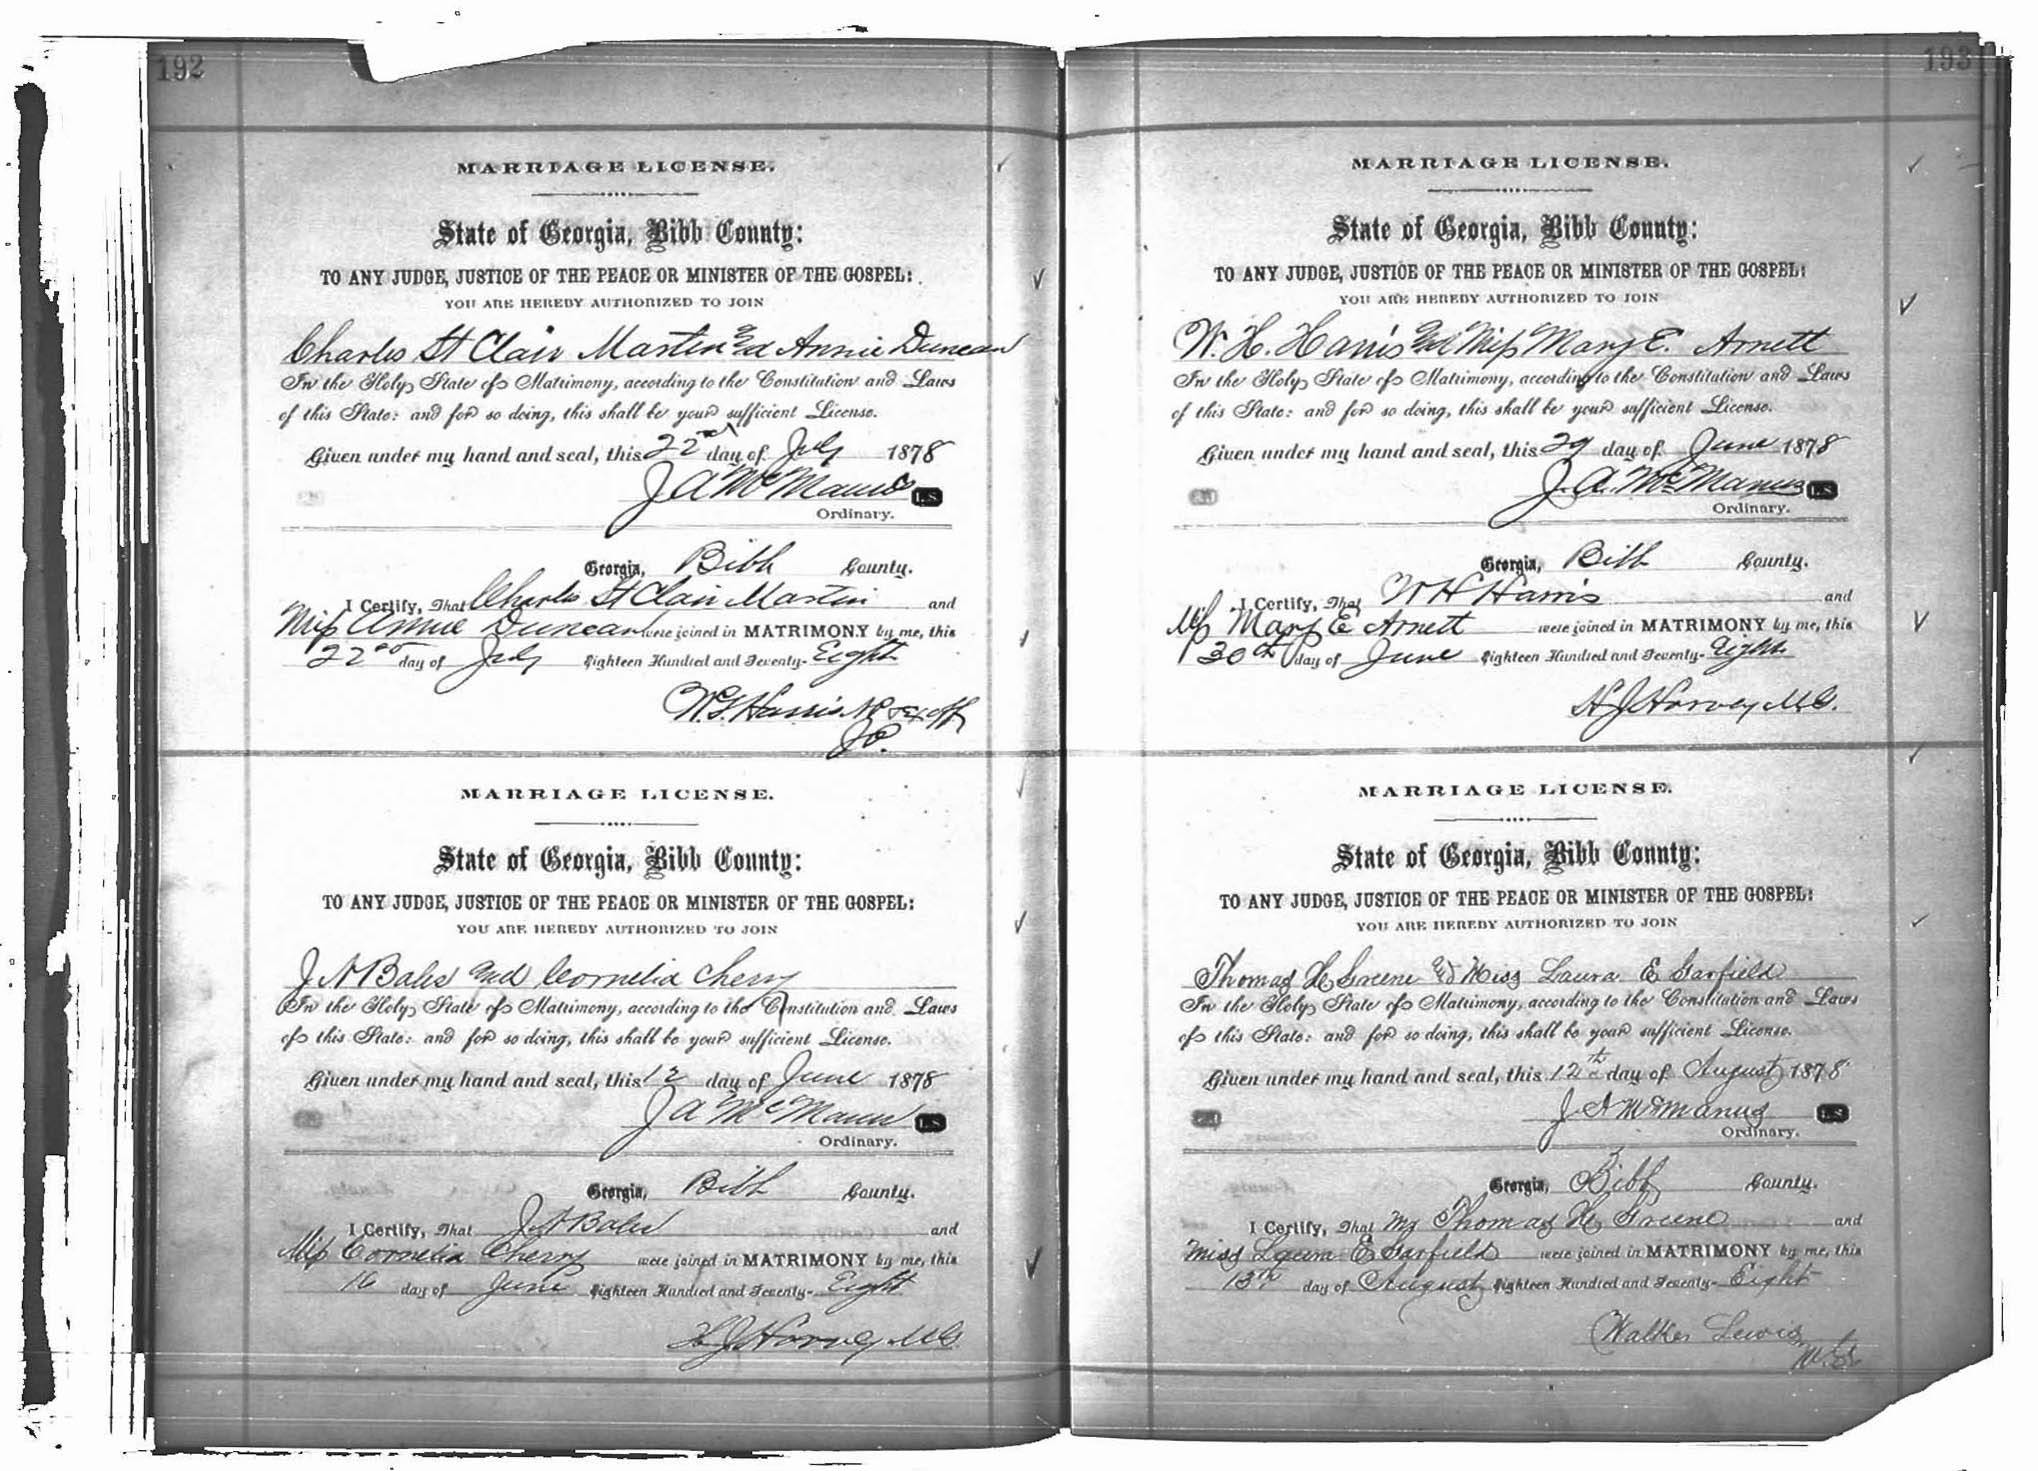 192
MARRIAGE LICENSE.
State of Georgia, Bibb County:
TO ANY JUDGE, JUSTICE OF THE PEACE OR MINISTER OF THE GOSPEL:
YOU ARE HEREBY AUTHORIZED TO JOIN
Charles St Clair Martin and Annie Duncan
In the Holy State of Matrimony, according to the Constitution and Laws
of this State: and for so doing, this shall be your sufficient License.
Given under my hand and seal, this 22nd day of July 1878
J A McManus L.S.
Ordinary.
Georgia, Bibb County.
I Certify, That Charles St Clair Martin and
Miss Annie Duncan were joined in MATRIMONY by me, this
22nd day of July Eighteen Hundred and Seventy-Eight
W. Harris NP & Ex off
JP.
MARRIAGE LICENSE.
State of Georgia, Bibb County:
TO ANY JUDGE, JUSTICE OF THE PEACE OR MINISTER OF THE GOSPEL:
YOU ARE HEREBY AUTHORIZED TO JOIN
J N Bales and Cornelia Cherry
In the Holy State of Matrimony, according to the Constitution and Laws
of this State: and for so doing, this shall be your sufficient License.
Given under my hand and seal, this 12 day of June 1878
J A McManus L.S.
Ordinary.
Georgia, Bibb County.
I Certify, That J N Bales and
Miss Cornelia Cherry were joined in MATRIMONY by me, this
16 day of June Eighteen Hundred and Seventy-Eight
H J Harvey M.G.
193
MARRIAGE LICENSE.
State of Georgia, Bibb County:
TO ANY JUDGE, JUSTICE OF THE PEACE OR MINISTER OF THE GOSPEL:
YOU ARE HEREBY AUTHORIZED TO JOIN
W. H. Harris and Miss Mary E. Arnett
In the Holy State of Matrimony, according to the Constitution and Laws
of this State: and for so doing, this shall be your sufficient License.
Given under my hand and seal, this 29 day of June 1878
J. A. McManus L.S.
Ordinary.
Georgia, Bibb County.
I Certify, That W H Harris and
Miss Mary E Arnett were joined in MATRIMONY by me, this
30th day of June Eighteen Hundred and Seventy-Eight
H J Harvey M.G.
MARRIAGE LICENSE.
State of Georgia, Bibb County:
TO ANY JUDGE, JUSTICE OF THE PEACE OR MINISTER OF THE GOSPEL:
YOU ARE HEREBY AUTHORIZED TO JOIN
Thomas H Greene & Miss Laura E Garfield
In the Holy State of Matrimony, according to the Constitution and Laws
of this State: and for so doing, this shall be your sufficient License.
Given under my hand and seal, this 12th day of August 1878
J A McManus L.S.
Ordinary.
Georgia, Bibb County.
I Certify, That Mr Thomas H Greene and
Miss Laura E Garfield were joined in MATRIMONY by me, this
13th day of August Eighteen Hundred and Seventy-Eight
Walker Lewis
M.G.